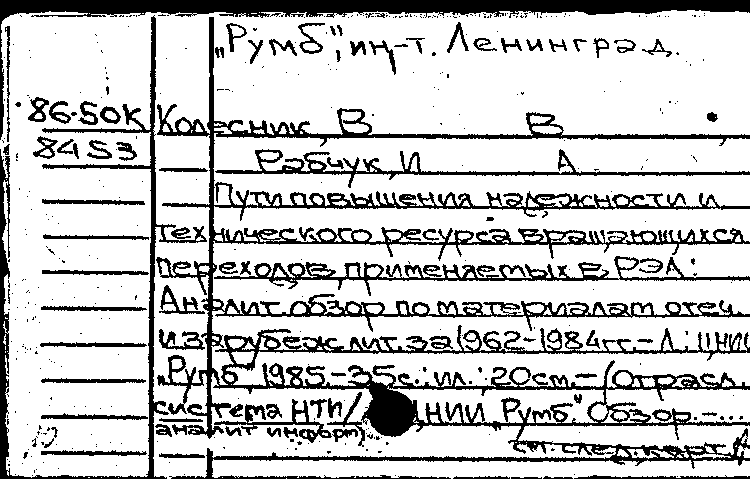 „Румб", ин-т. Ленинград.
86-50К Колесник, В В
8453 Рабчук, И А
Пути повышения надежности и
технического ресурса вращающихся
переходов, применяемых в РЭА:
Аналит. обзор по материалам отеч.
и зарубеж лит. за 1962-1984гг.- Л.: ЦНИИ
„Румб", 1985.-35с.: ил.; 20см.- (Отрасл.
система НТИ/ ЦНИИ „Румб." Обзор.-...
аналит информ)
см. след. карт.